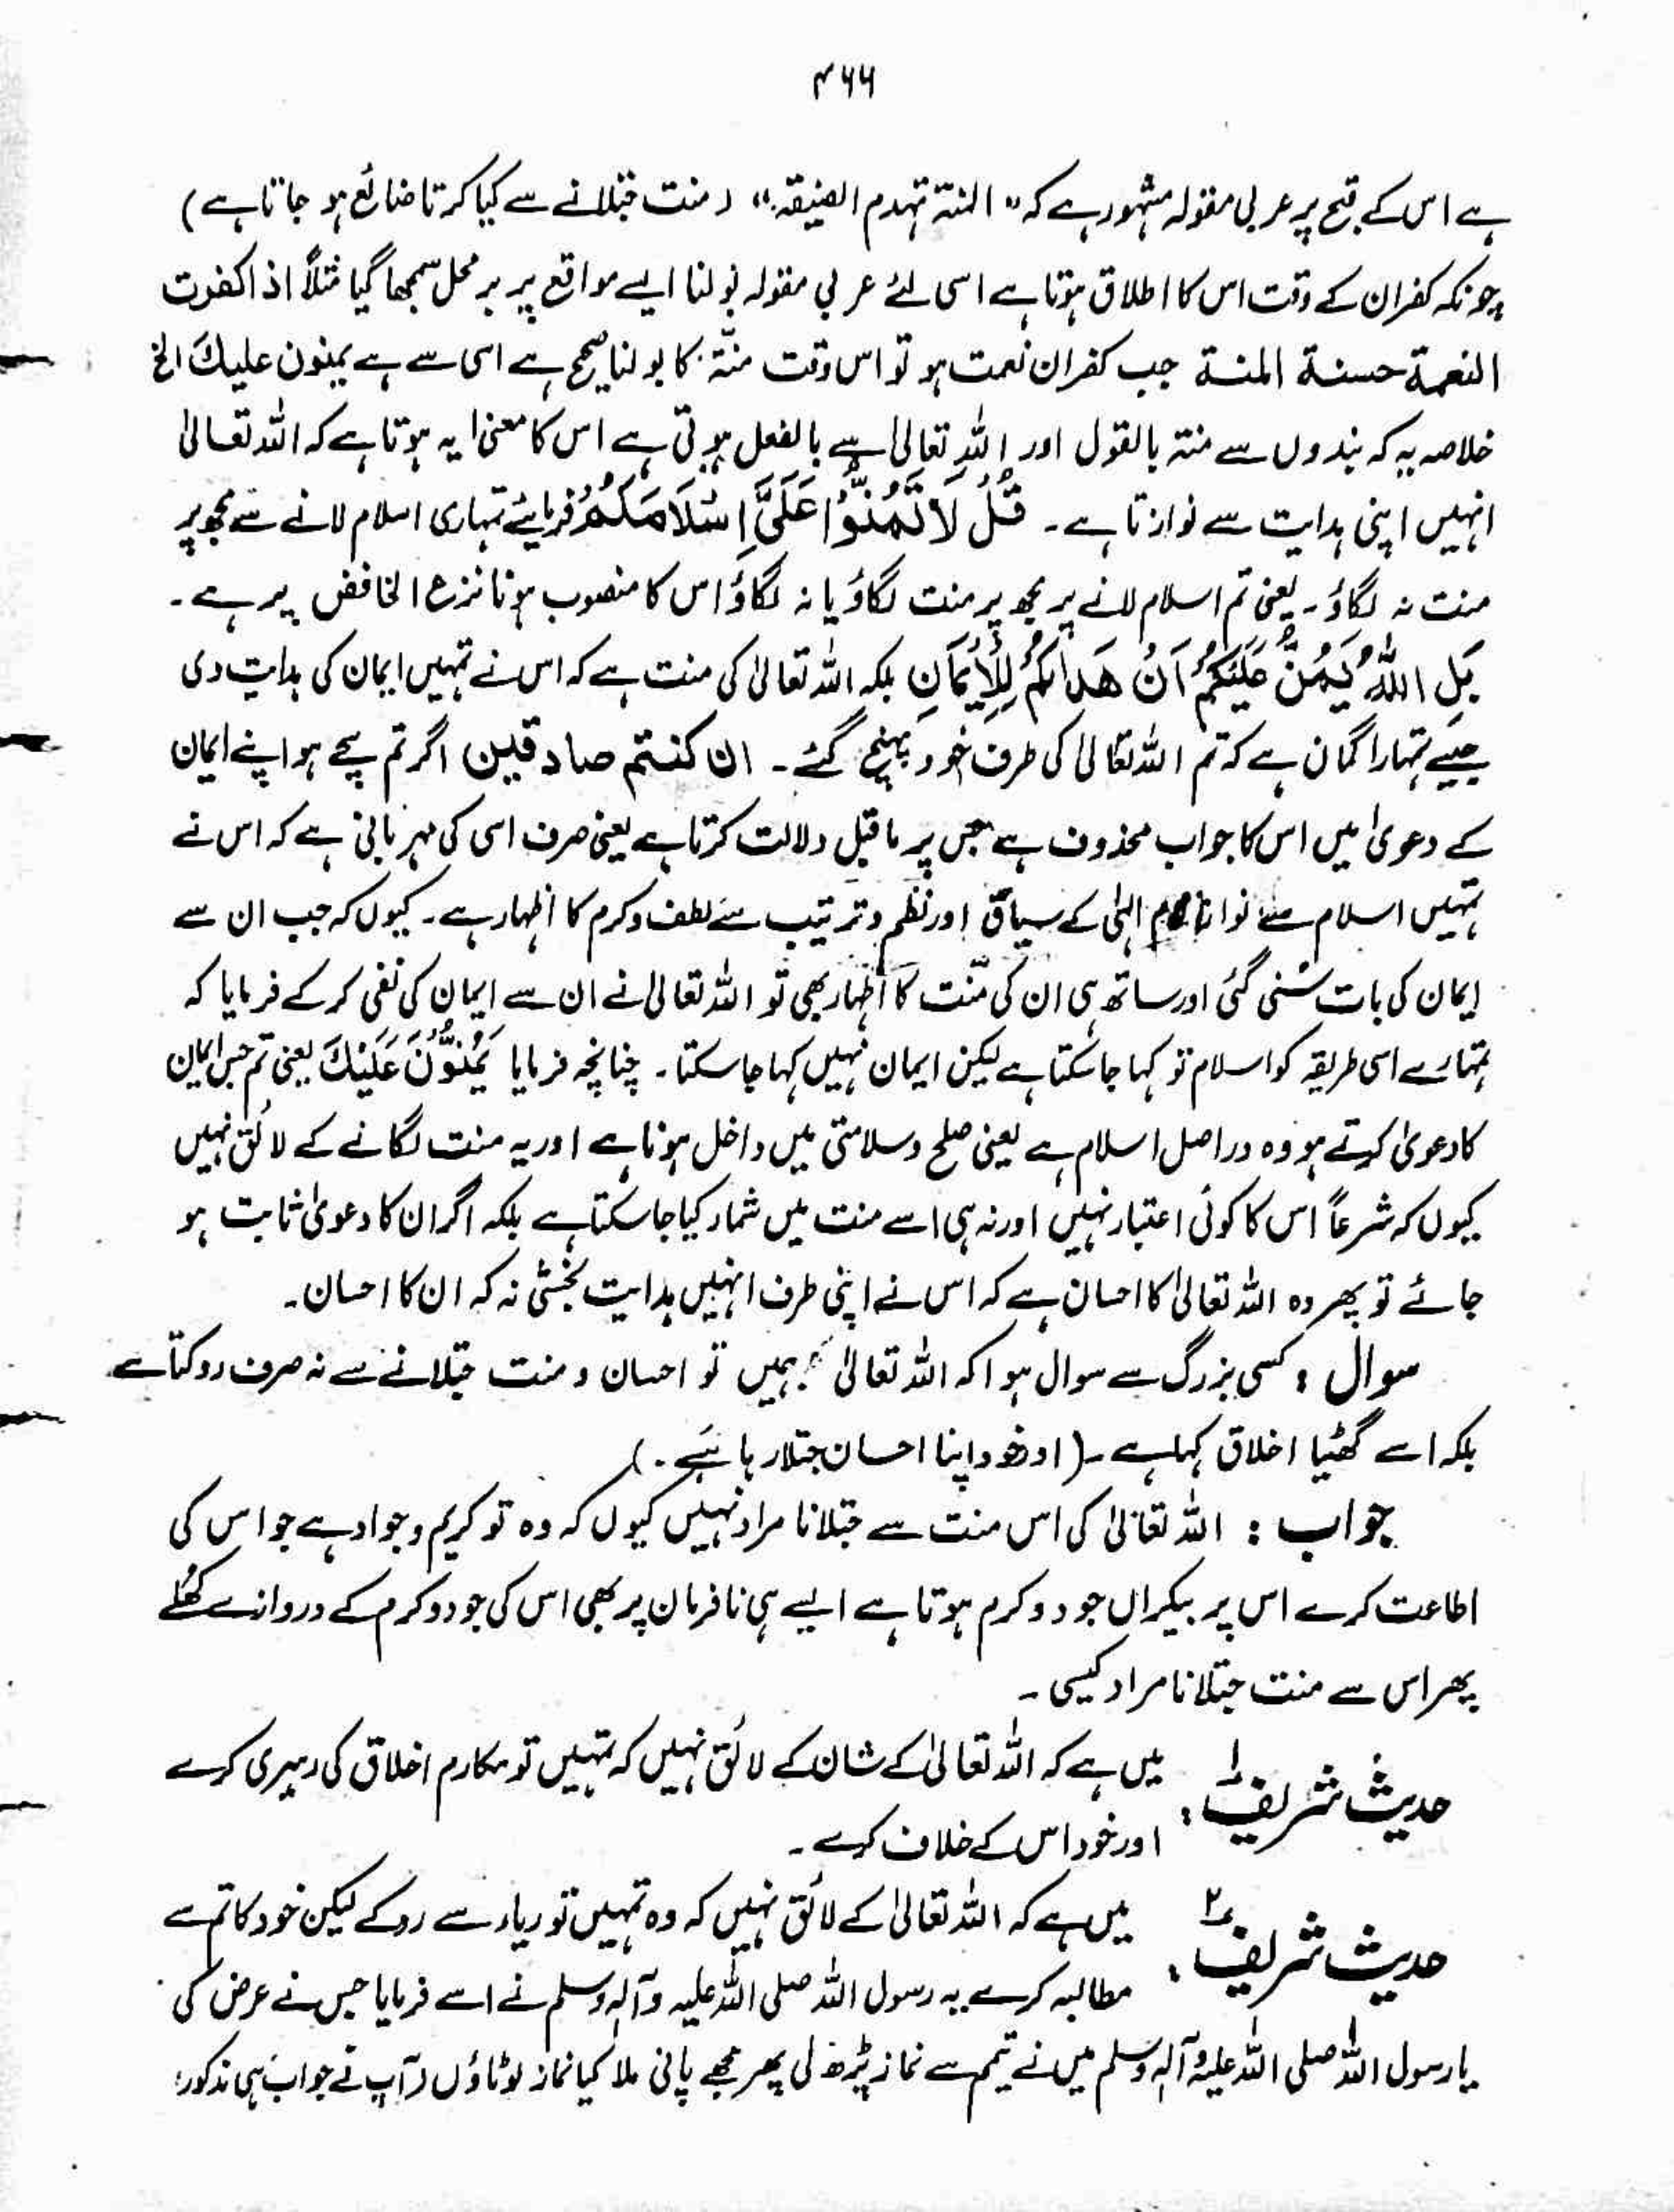 ۴۶۶
ہے اس کے قبح پر عربی مقولہ مشہور ہے کہ "المنۃ تہدم الصنیقۃ" (منت جتلانے سے کیا کرتا ضائع ہو جاتا ہے)
چونکہ کفران کے وقت اس کا اطلاق ہوتا ہے اسی لئے عربی مقولہ بولنا ایسے مواقع پر بر محل سمجھا گیا مثلاً اذا کفرت
النعمة حسنة المنة جب کفران نعمت ہو تو اس وقت منّۃ کا بولنا صحیح ہے اسی سے ہے یمنون علیك الخ
خلاصہ یہ کہ بندوں سے منتہ بالقول اور اللہ تعالیٰ سے بالفعل ہوتی ہے اس کا معنیٰ یہ ہوتا ہے کہ اللہ تعالیٰ
انہیں اپنی ہدایت سے نوازتا ہے۔ قُلْ لَا تَمُنُّوْا عَلَیَّ اِسْلَامَكُمْ فرمایئے تمہاری اسلام لانے سے مجھ پر
منت نہ لگاؤ۔ یعنی تم اسلام لانے پر مجھ پر منت لگاؤ یا نہ لگاؤ اس کا منصوب ہونا نزع الخافض پر ہے۔
بَلِ اللّٰهُ یَمُنُّ عَلَیْكُمْ اَنْ هَدٰىكُمْ لِلْاِیْمَانِ بلکہ اللہ تعالیٰ کی منت ہے کہ اس نے تمہیں ایمان کی ہدایت دی
جیسے تمہارا گمان ہے کہ تم اللہ تعالیٰ کی طرف خود پہنچ گئے۔ ان کنتم صادقین اگر تم سچے ہو اپنے ایمان
کے دعویٰ میں اس کا جواب محذوف ہے جس پر ماقبل دلالت کرتا ہے یعنی صرف اسی کی مہربانی ہے کہ اس نے
تمہیں اسلام سے نوازا الہٰی کے سیاق اور نظم و ترتیب سے لطف و کرم کا اظہار ہے۔ کیوں کہ جب ان سے
ایمان کی بات سُنی گئی اور ساتھ ہی ان کی منّت کا اظہار بھی تو اللہ تعالیٰ نے ان سے ایمان کی نفی کر کے فرمایا کہ
تمہارے اسی طریقہ کو اسلام تو کہا جا سکتا ہے لیکن ایمان نہیں کہا جا سکتا۔ چنانچہ فرمایا یَمُنُّوْنَ عَلَیْكَ یعنی تم جس ایمان
کا دعویٰ کرتے ہو وہ دراصل اسلام ہے یعنی صلح و سلامتی میں داخل ہونا ہے اور یہ منت لگانے کے لائق نہیں
کیوں کہ شرعاً اس کا کوئی اعتبار نہیں اور نہ ہی اسے منت میں شمار کیا جا سکتا ہے بلکہ اگر ان کا دعویٰ ثابت ہو
جائے تو پھر وہ اللہ تعالیٰ کا احسان ہے کہ اس نے اپنی طرف انہیں ہدایت بخشی نہ کہ ان کا احسان۔
سوال : کسی بزرگ سے سوال ہوا کہ اللہ تعالیٰ ہمیں تو احسان و منت جتلانے سے نہ صرف روکتا ہے
بلکہ اسے گھٹیا اخلاق کہا ہے۔ (اور خود اپنا احسان جتلا رہا ہے۔)
جواب : اللہ تعالیٰ کی اس منت سے جتلانا مراد نہیں کیوں کہ وہ تو کریم و جواد ہے جو اس کی
اطاعت کرے اس پر بیکراں جود و کرم ہوتا ہے ایسے ہی نافرمان پر بھی اس کی جود و کرم کے دروازے کھُلے
پھر اس سے منت جتلانا مراد کیسی۔
حدیث شریف ۱ : میں ہے کہ اللہ تعالیٰ کے شان کے لائق نہیں کہ تمہیں تو مکارم اخلاق کی رہبری کرے
اور خود اس کے خلاف کرے۔
حدیث شریف ۲ : میں ہے کہ اللہ تعالیٰ کے لائق نہیں کہ وہ تمہیں تو ریاء سے روکے لیکن خود کا تم سے
مطالبہ کرے یہ رسول اللہ صلی اللہ علیہ وآلہٖ وسلم نے اسے فرمایا جس نے عرض کی
یا رسول اللہ صلی اللہ علیہ وآلہٖ وسلم میں نے تیمم سے نماز پڑھ لی پھر مجھے پانی ملا کیا نماز لوٹاؤں (آپ نے جواب ہی مذکور